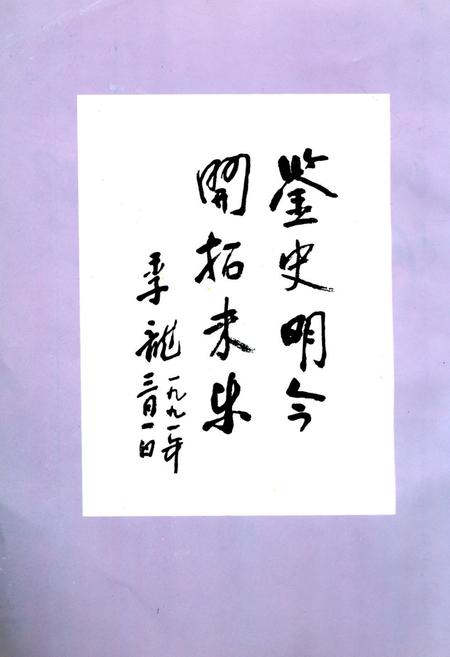 鉴史明今
開拓未来
季龍
一九九一年
三月一日